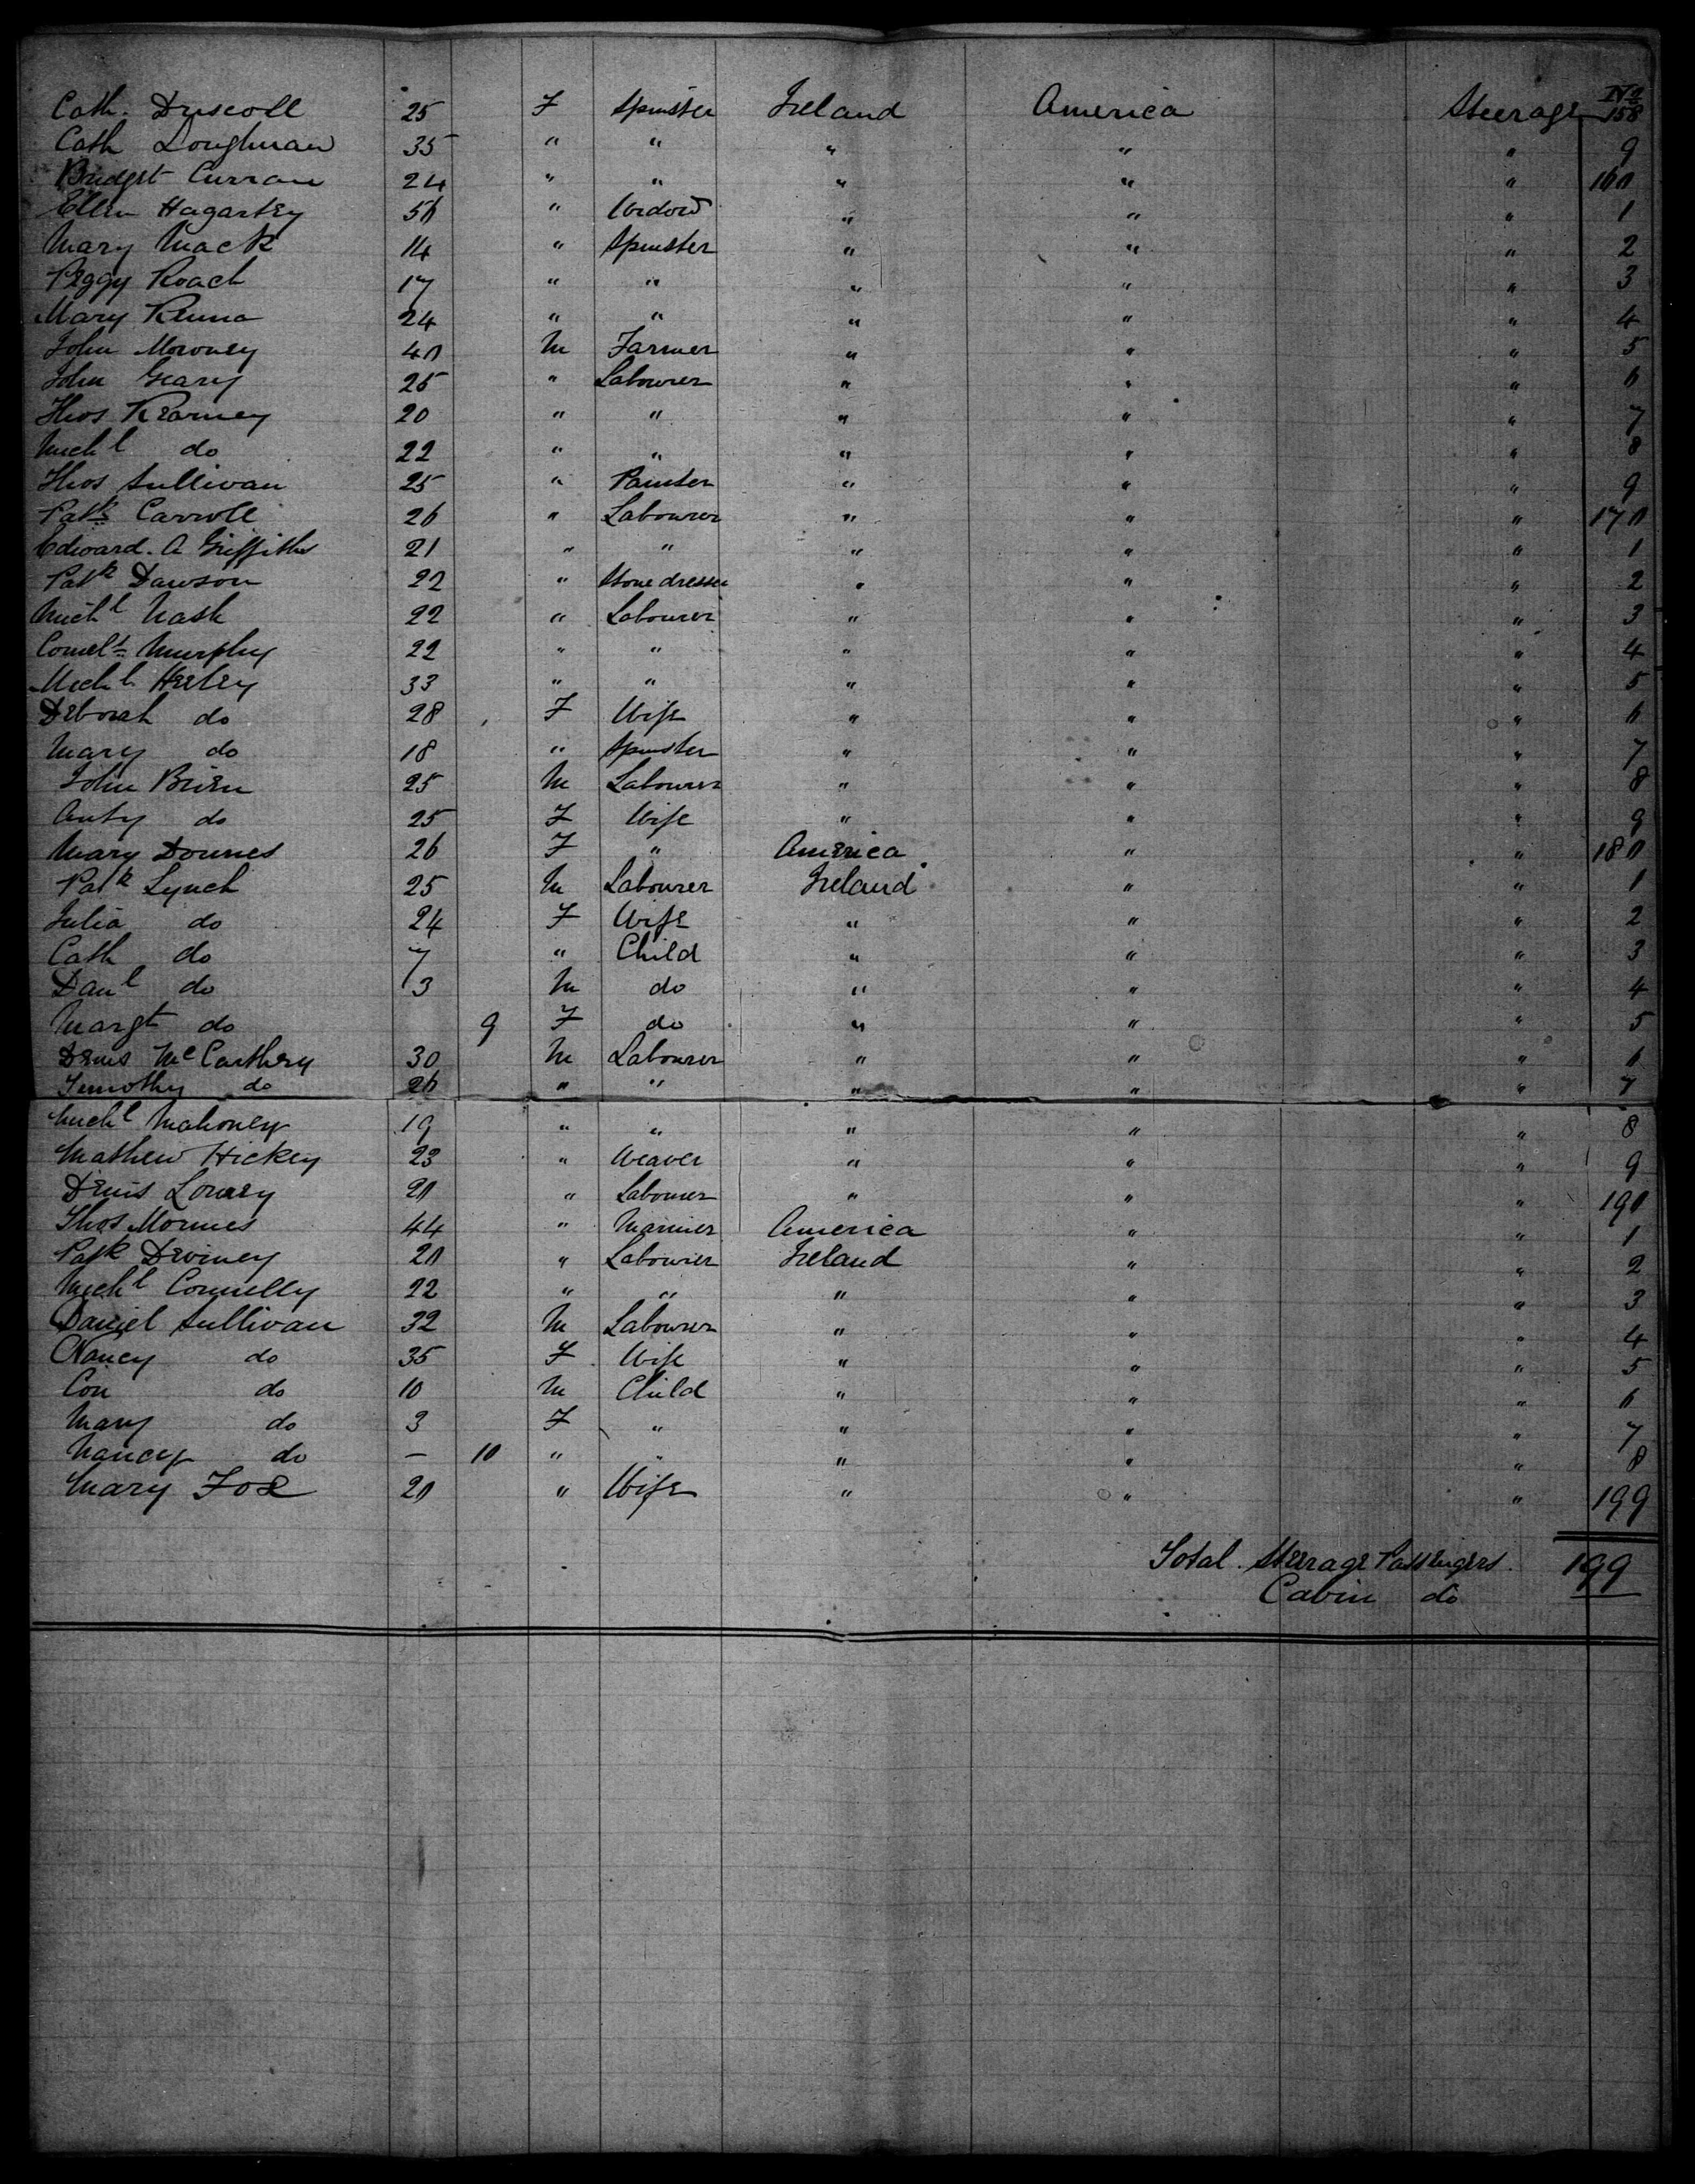 No
Cath. Driscoll 25 F Spinster Ireland America Steerage 158
Cath Loughnan 35 " " " " " 9
Bridget Curran 24 " " " " " 160
Ellen Hagartey 50 " Widow " " " 1
Mary Mack 14 " Spinster " " " 2
Peggy Roach 17 " " " " " 3
Mary Kenna 24 " " " " " 4
John Moroney 40 M Farmer " " " 5
John Geary 25 " Labourer " " " 6
Thos Kearney 20 " " " " " 7
Michl do 22 " " " " " 8
Thos Sullivan 25 " Painter " " " 9
Patk Carroll 26 " Labourer " " " 170
Edward. A Griffiths 21 " " " " " 1
Patk Dawson 22 " Stone dresser " " " 2
Michl Nash 22 " Labourer " " " 3
Cornels Murphy 22 " " " " " 4
Michl Herley 33 " " " " " 5
Deborah do 28 F Wife " " " 6
Mary do 18 " Spinster " " " 7
John Brien 25 M Labourer " " " 8
Anty do 25 F Wife " " " 9
Mary Downes 26 F " America " " 180
Patk Lynch 25 M Labourer Ireland " " 1
Julia do 24 F Wife " " " 2
Cath do 7 " Child " " " 3
Danl do 3 M do " " " 4
Margt do 9 F do " " " 5
Denis McCarthery 30 M Labourer " " " 6
Timothy do 26 " " " " " 7
Michl Mahoney 19 " " " " " 8
Mathew Hickey 23 " Weaver " " " 9
Denis Lowey 20 " Labourer " " " 190
Thos 44 " Mariner America " " 1
Patk Deviney 20 " Labourer Ireland " " 2
Michl Connelly 22 " " " " " 3
Daniel Sullivan 32 M Labourer " " " 4
Nancy do 35 F Wife " " " 5
Con do 10 M Child " " " 6
Mary do 3 F " " " " 7
Nancy do – 10 " " " " " 8
Mary Fox 20 " Wife " " " 199
Total Steerage Passengers. 199
Cabin do